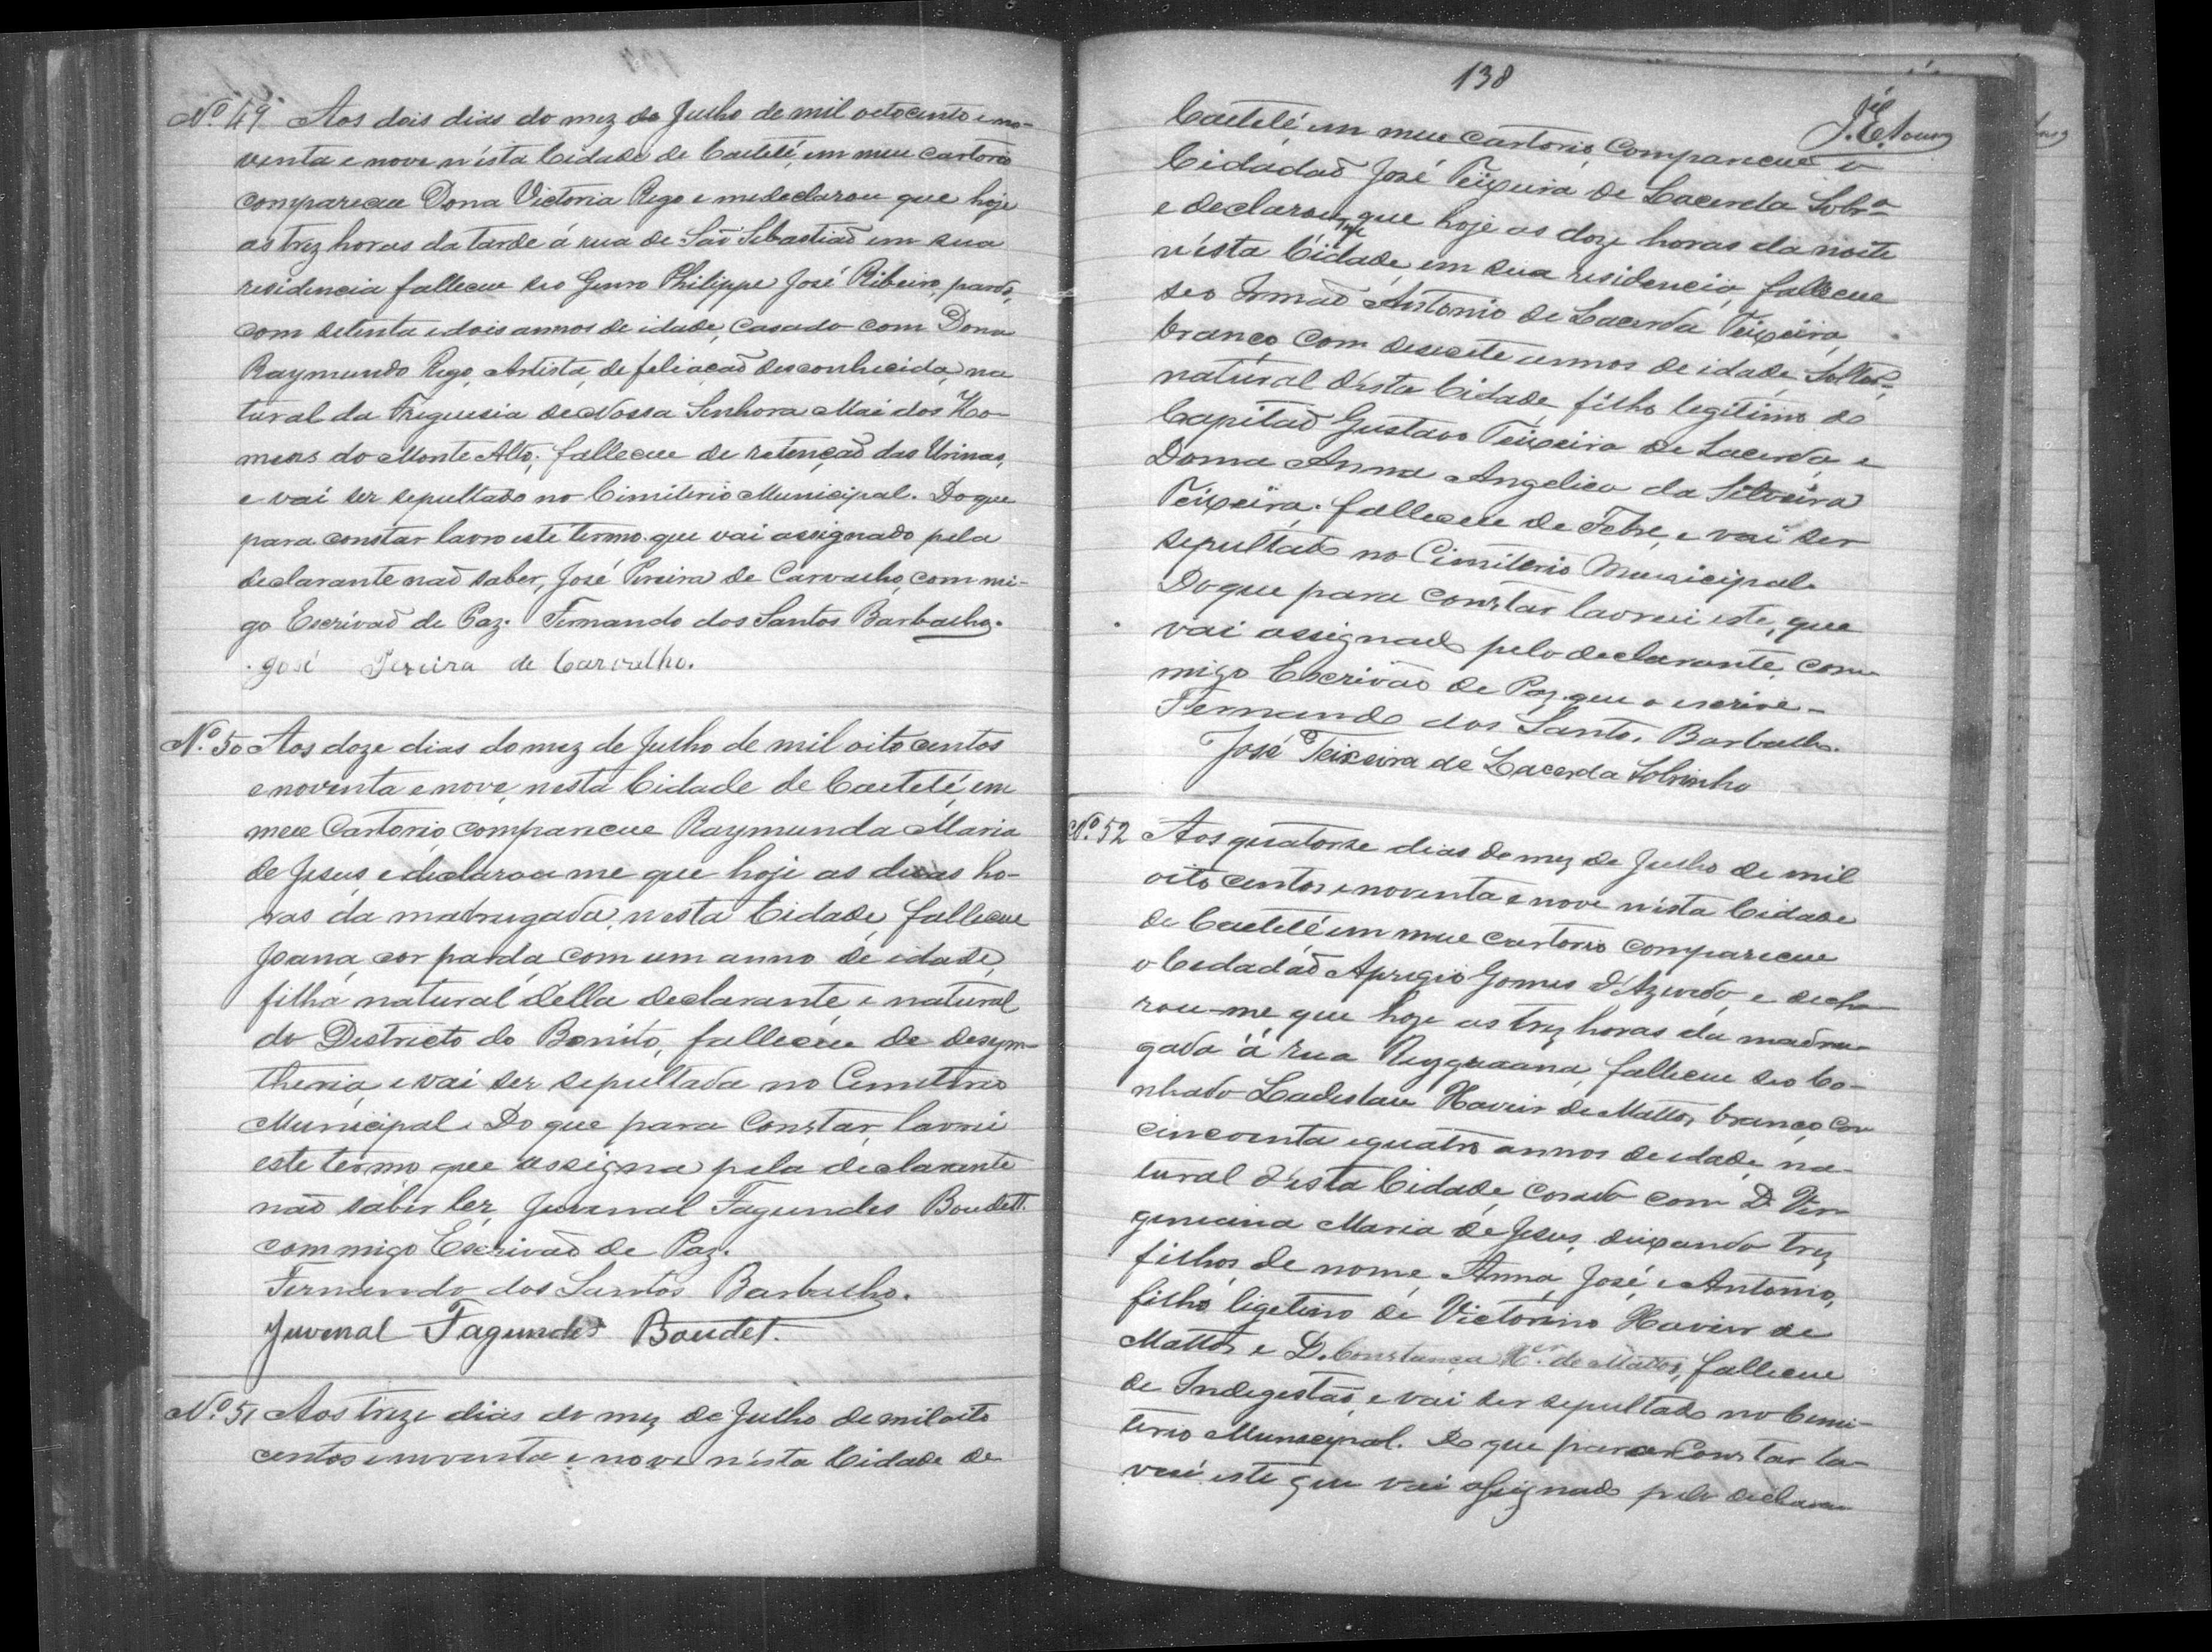 Nº 49 Aos dois dias do mez de Julho de mil oetocento e no-
venta e nove n'ésta Cidade de Caetité, em meu cartorio
compareceu Dona Victoria Rego e me declarou que hoje
as trez horas da tarde á rua de São Sebastiaõ em sua
residencia falleceu seo Genro Philippe José Ribeiro, pardo,
com setenta e dois annos de idade, casado com Dona
Raymundo Rego, Artista, de filiaçaõ desconhecida, na
tural da Freguesia de Nossa Senhora Mai dos Ho-
mens do Monte Alto; falleceu de retençaõ das Urinas,
e vai ser sepultado no Cimiterio Municipal. Do que
para constar lavro este termo que vai assignado pela
declarante naõ saber, José Pereira de Carvalho, com mi-
go Escrivaõ de Paz. Fernando dos Santos Barbalho.
José Pereira de Carvalho.
Nº 50 Aos doze dias do mez de Julho de mil oito centos
e noventa e nove, nesta Cidade de Caetité, em
meu Cartorio, compareceu Raymunda Maria
de Jesus e declarou me que hoje as duas ho-
ras da madrugada, nesta Cidade, falleceu
Joana, cor parda, com um anno de idade,
filha natural d'élla declarante, e natural
do Districto do Bonito, falleceu de desyn-
theria, e vai ser sepultada no Cemiterio
Municipal. Do que para Constar, lavrei
este termo, que assigna pela declarante
naõ saber ler, Juvenal Fagundes Boudett.
com migo Escrivaõ de Paz.
Fernando dos Santos Barbalho.
Juvenal Fagundes Boudet.
Nº 51 Aos treze dias do mez de Julho de mil oito
centos e noventa e nove n'ésta Cidade de
138
Caetité em meu cartorio, compareceu o
Cidadaõ José Teixeira de Lacerda Sobrº
e declarou, que hoje as doze horas da noite
n'ésta Cidade, em sua residencia, falleceu
seo Irmaõ Antonio de Lacerda Teixeira,
branco, com desesete annos de idade, Soltrº,
natural d'ésta Cidade, filho legitimo do
Capitaõ Gustavo Teixeira de Lacerda e
Donna Anna Angelica da Silveira
Teixeira. falleceu de Febre, e vai ser
sepultado no Cimiterio Municipal.
Do que para constar lavrei este, que
vai assignado pelo declarante, com
migo Escrivaõ de Paz que o escrevi-
Fernando dos Santos Barbalho.
José Teixeira de Lacerda Sobrinho
Nº 52 Aos quatorse dias do mez de Julho de mil
oito centos e noventa e nove n'ésta Cidade
de Caetité em meu cartorio compareceu
o Cidadaõ Aprigio Gomes d'Azevedo, e decla
rou-me que hoje as trez horas da madru-
gada á rua falleceu seo Co-
nhado Ladislau Xavier de Mattos, branco, com
cincoenta e quatro annos de idade, na-
tural d'ésta Cidade, casado com D. Vir
giniana Maria de Jesus, deixando trez
filhos de nome, Anna, José, e Antonio,
filho ligetimo de Victorino Xavier de
Mattos e D. Constança Xer de Mattos, falleceu
de Indegestaõ, e vai ser sepultado no Cemi-
terio Municipal. Do que para Constar la-
vrei este que vai assignado pelo declaran